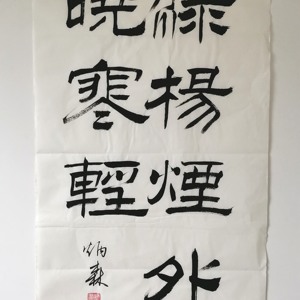 綠楊煙外
曉寒輕
炳森